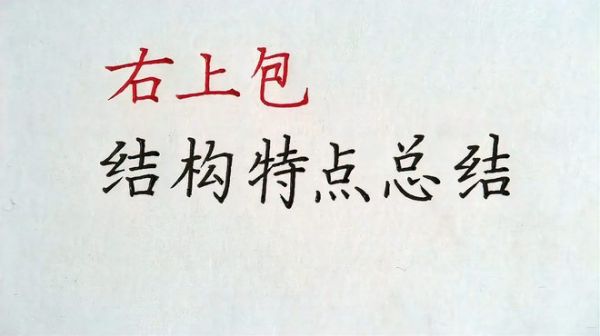 右上包
结构特点总结